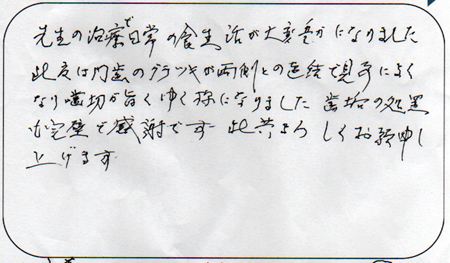 先生の治療で日常の食生活が大変豊かになりました
此度は門歯のグラツキが両側との連結で見事によく
なり噛切が旨くゆく様になりました 歯垢の処置
が完璧で感謝です 此共よろしくお願申し
上げます